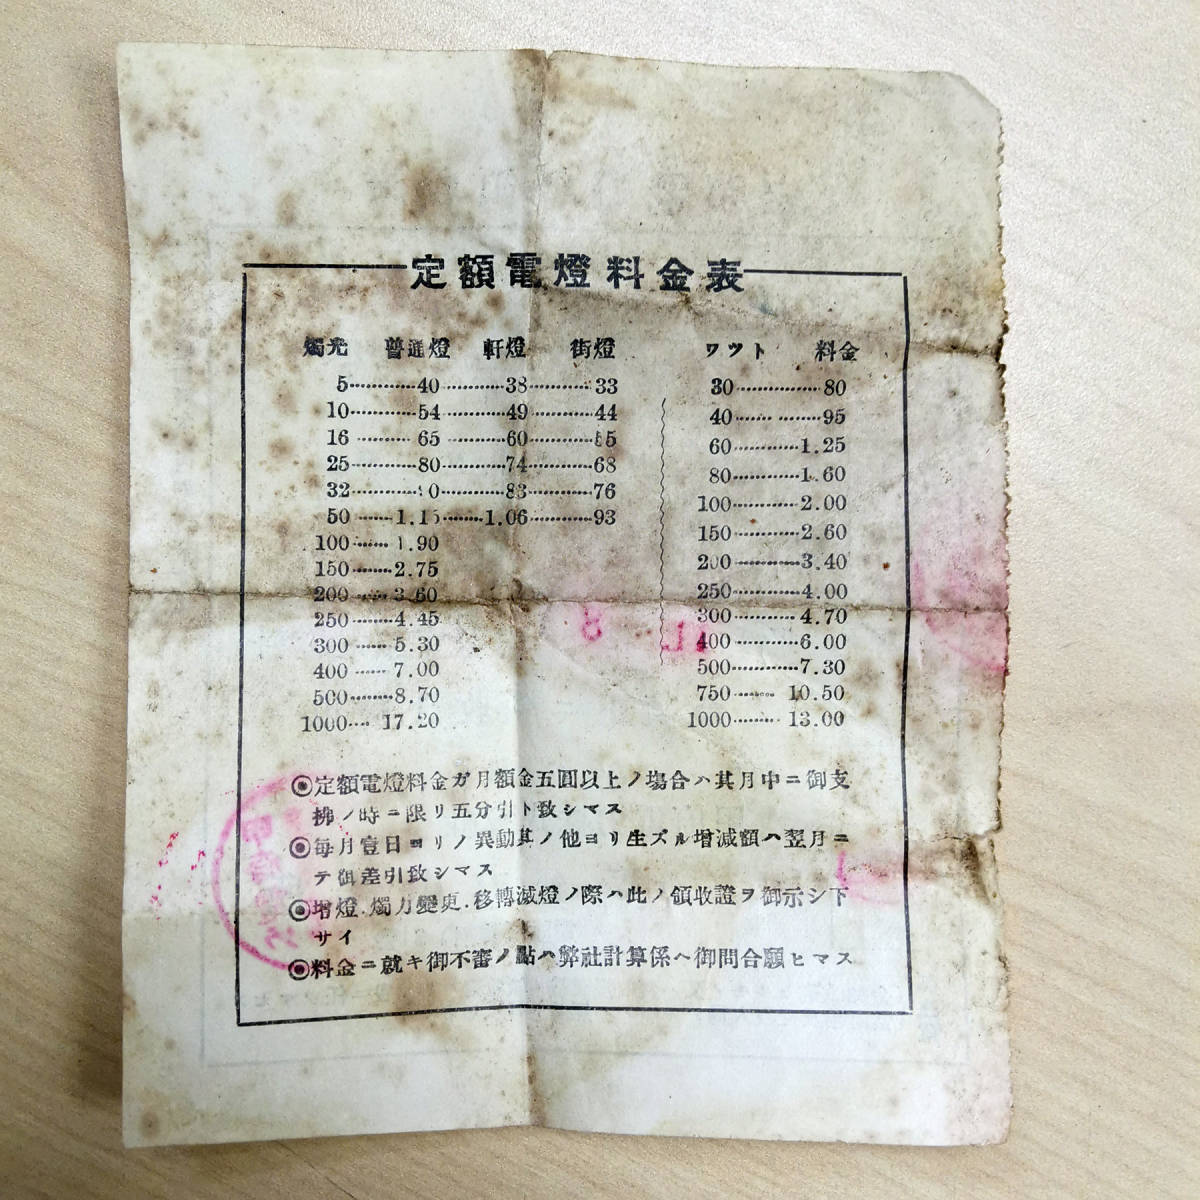 定額電燈料金表
燭光 普通燈 軒燈 街燈
5............40...........38...........33
10............54...........49...........44
16..........65..........60...........55
25............80...........74...........68
32............0...........83...........76
50......1.15.......1.06...........93
100......1.90
150.......2.75
200......3.60
250.......4.45
300......5.30
400......7.00
500........8.70
1000....17.20
ワツト 料金
30................80
40..............95
60............1.25
80............1.60
100............2.00
150............2.60
200............3.40
250............4.00
300...........4.70
400............6.00
500............7.30
750........10.50
1000.........13.00
11. 8
◉定額電燈料金ガ月額金五圓以上ノ場合ハ其月中ニ御支
拂ノ時ニ限リ五分引ト致シマス
◉毎月壹日ヨリノ異動其ノ他ヨリ生ズル增減額ハ翌月ニ
テ御差引致シマス
◉增燈.燭力變更.移轉滅燈ノ際ハ此ノ領收證ヲ御示シ下
サイ
◉料金ニ就キ御不審ノ點ハ弊社計算係ヘ御問合願ヒマス